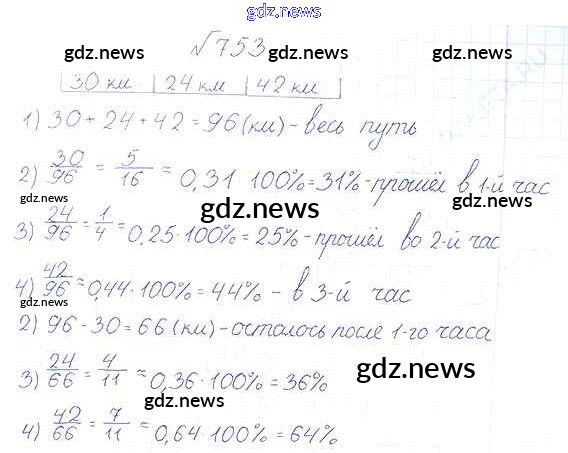 gdz.news
№753
gdz.news gdz.news
30 км | 24 км | 42 км
1) 30 + 24 + 42 = 96 (км) - весь путь
2) 30/96 = 5/16 = 0,31 100% = 31% - прошёл в 1-й час
gdz.news gdz.news gdz.news
3) 24/96 = 1/4 = 0,25 · 100% = 25% - прошёл во 2-й час
4) 42/96 ≈ 0,44 · 100% = 44% - в 3-й час
gdz.news gdz.news
2) 96 - 30 = 66 (км) - осталось после 1-го часа
3) 24/66 = 4/11 ≈ 0,36 · 100% = 36%
gdz.news
gdz.news
4) 42/66 = 7/11 ≈ 0,64 · 100% = 64%
gdz.news